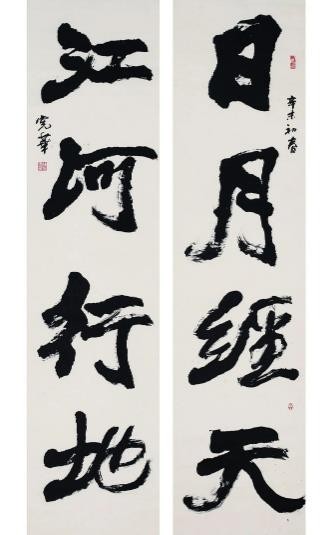 辛未初春
日月經天
江河行地
華